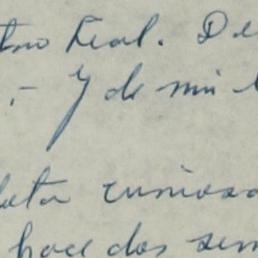 tro Leal. De
.- Y de mi
lota curiosa
hace dos sem